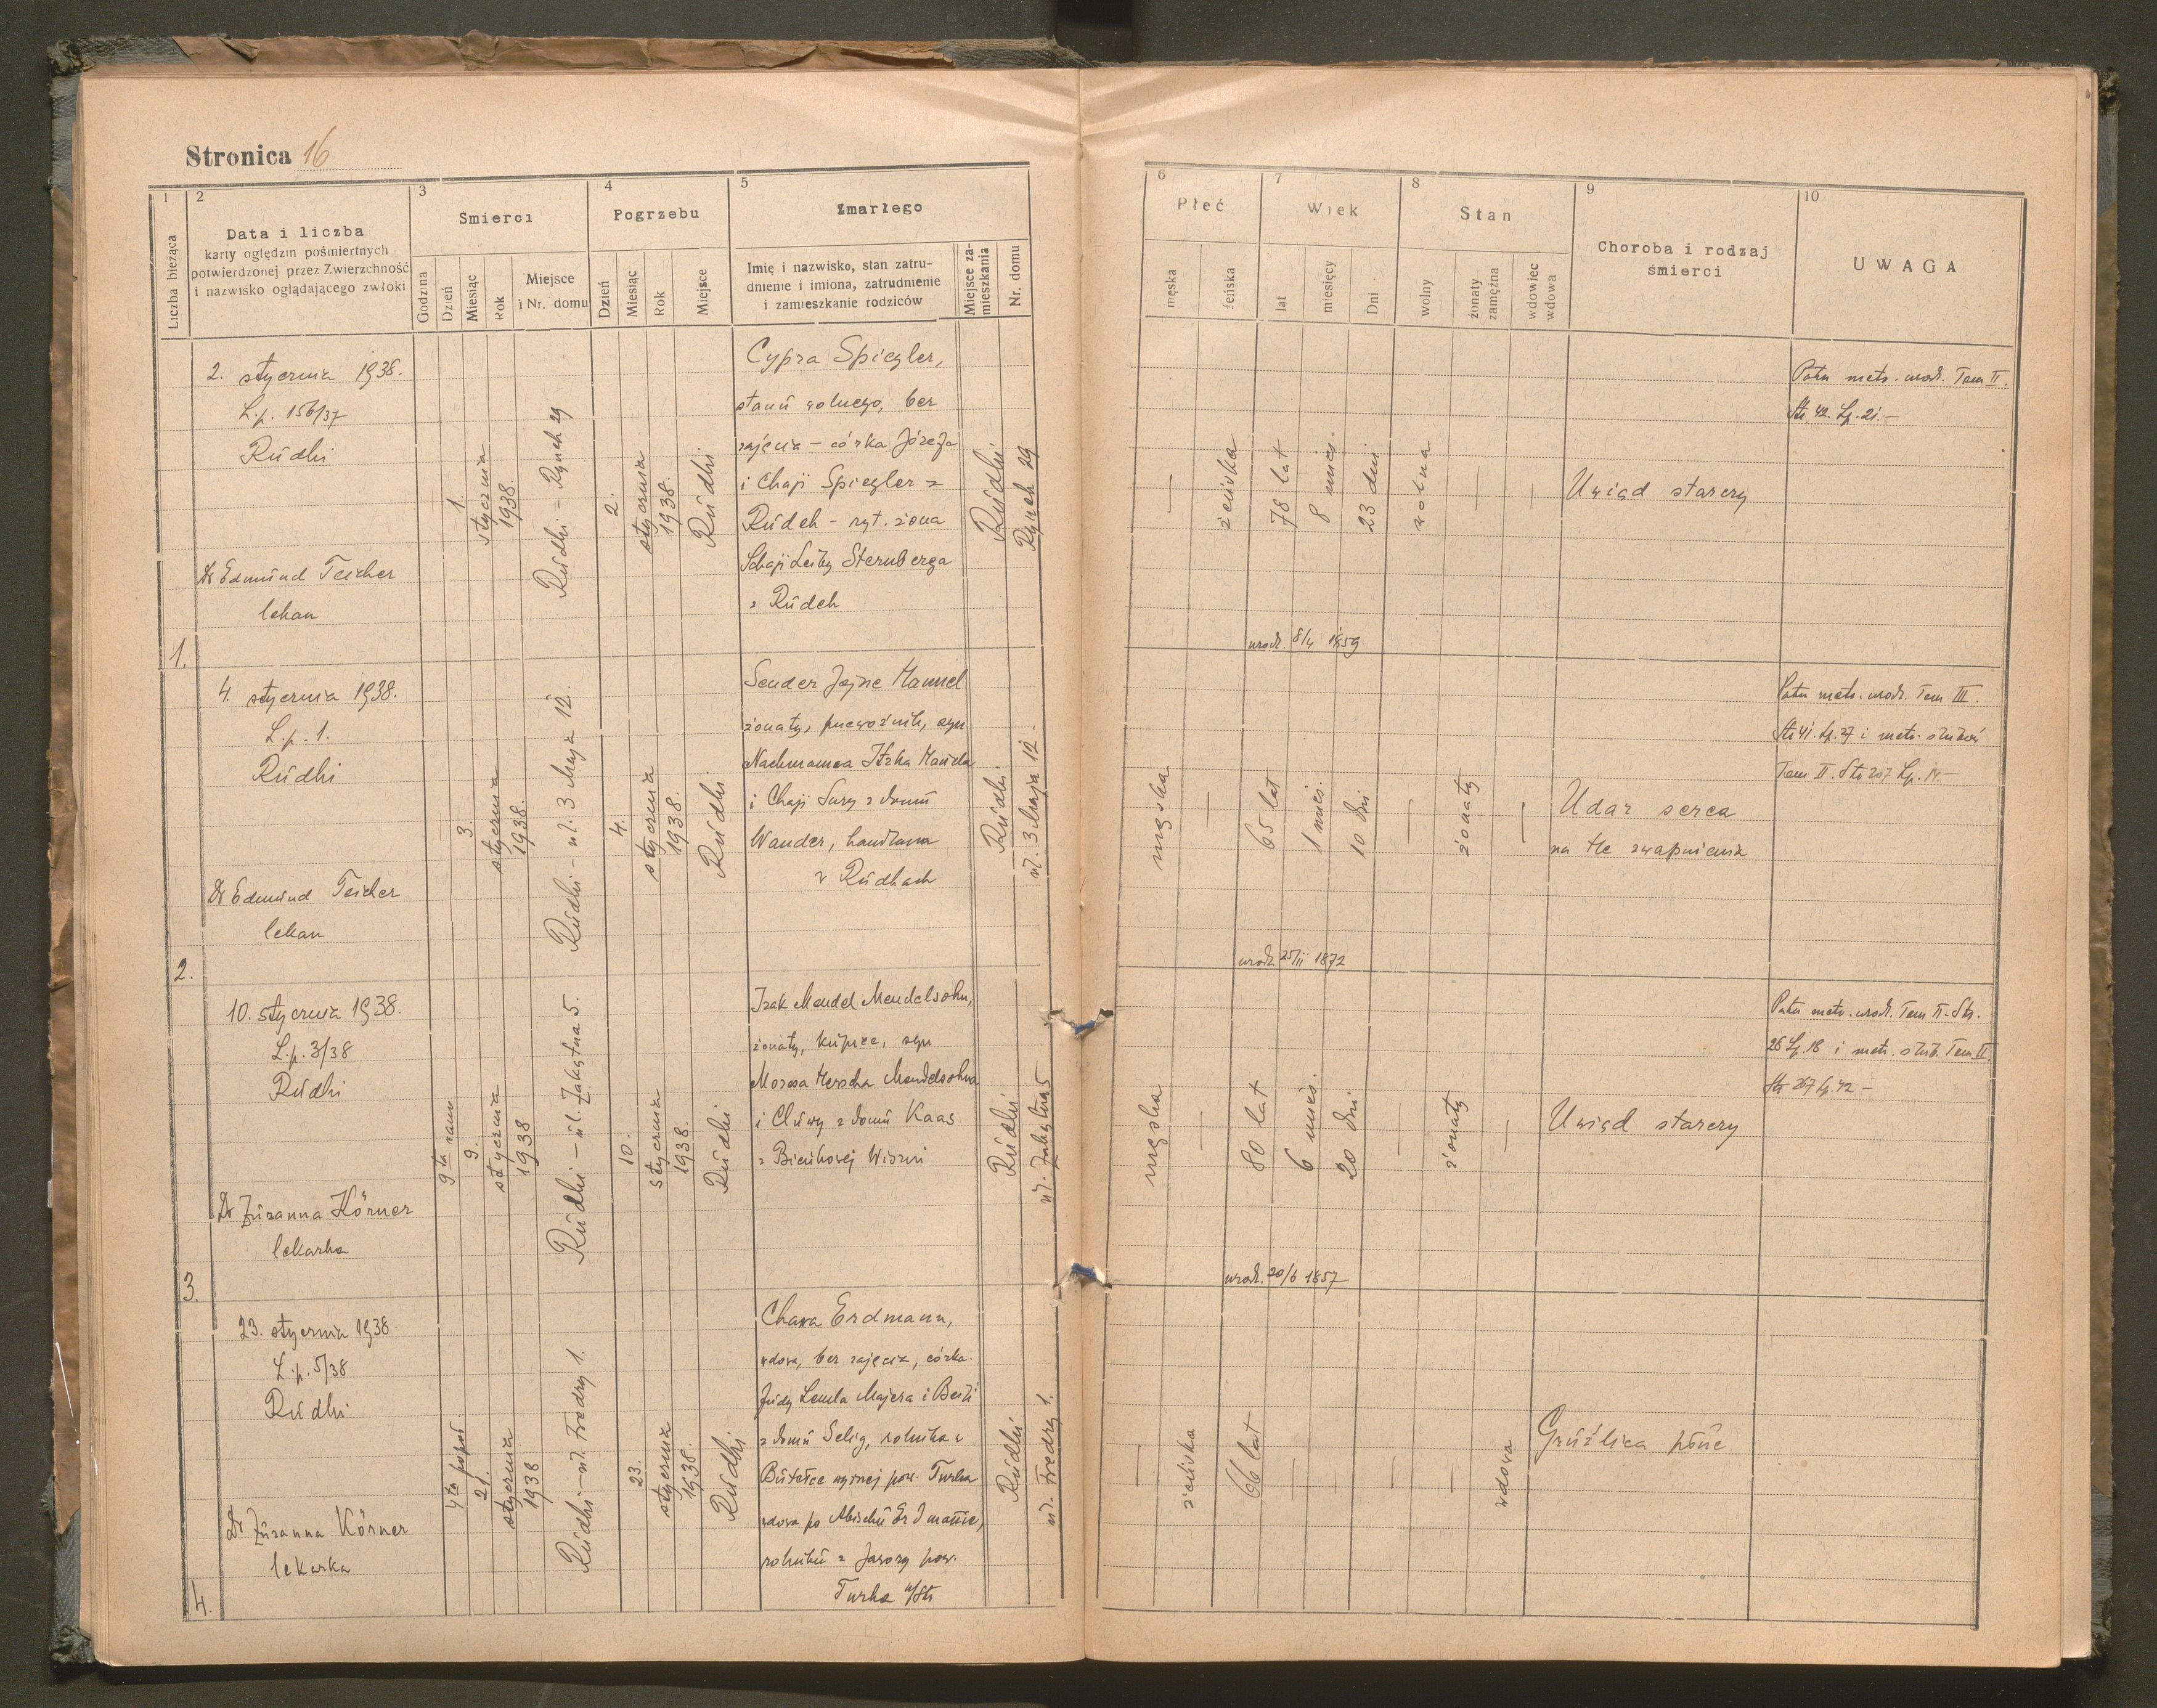 Stronica 16
1 2 3 4 5
Liczba bieżąca
Data i liczba
karty oględzin pośmiertnych
potwierdzonej przez Zwierzchność
i nazwisko oglądającego zwłoki
Smierci
Godzina
Dzień
Miesiąc
Rok
Miejsce
i Nr. domu
Pogrzebu
Dzień
Miesiąc
Rok
Miejsce
Zmarłego
Imię i nazwisko, stan zatru-
dnienie i imiona, zatrudnienie
i zamieszkanie rodziców
Miejsce za-
mieszkania
Nr. domu
6 7 8 9 10
Płeć
męska
żeńska
Wiek
lat
miesięcy
Dni
Stan
wolny
żonaty
zamężna
wdowiec
wdowa
Choroba i rodzaj
śmierci
UWAGA
1.
2. stycznia 1938.
L.p. 156/37
Rudki
Dr Edmund Teicher
lekarz
1.
stycznia
1938.
Rudki - Rynek 29
2.
stycznia
1938.
Rudki
Cypra Spiegler,
stanu wolnego, bez
zajęcia - córka Józefa
i Chaji Spiegler z
Rudek - ryt. żona
Schaji Leiby Sternberga
z Rudek
Rudki
Rynek 29
—
żeńska
78 lat
8 mies.
23 dni
wolna
—
—
Uwiąd starczy
Patrz metr. urodz. Tom II.
Str. 42. Lp. 21.-
urodz. 8/4 1859
2.
4. stycznia 1938.
L.p. 1.
Rudki
Dr Edmund Teicher
lekarz
3.
stycznia
1938.
Rudki - ul. 3 Maja 12.
4.
stycznia
1938.
Rudki
Sender Jojne Mannel
żonaty, przewoźnik, syn
Nachmanea Itzka Manela
i Chaji Sury z domu
Wander, handlarza
w Rudkach
Rudki
ul. 3 Maja 12.
męska
—
65 lat
1 mies.
10 dni
—
żonaty
—
Udar serca
na tle zwapnienia
Patrz metr. urodz. Tom III.
Str 41. Lp. 27 i metr. ślubów
Tom II. Str 207 Lp. 14.-
urodz. 25/11 1872
3.
10. stycznia 1938.
L.p. 3/38
Rudki
Dr Zuzanna Körner
lekarka
9ta rano
9.
stycznia
1938
Rudki - ul. Zakątna 5.
10.
stycznia
1938.
Rudki
Izak Mendel Mendelsohn,
żonaty, kupiec, syn
Mozesa Herscha Mendelsohna
i Chuwy z domu Kaas
z Bieńkowej Wiszni
Rudki
ul. Zakątna 5
męska
—
80 lat
6 mies.
20 dni
—
żonaty
—
Uwiąd starczy
Patrz metr. urodz. Tom II. Str.
26 Lp. 18 i metr. ślub. Tom II
Str 267 Lp. 42 -
urodz. 20/6 1857
4.
23. stycznia 1938.
L.p. 5/38
Rudki
Dr Zuzanna Körner
lekarka
4ta popoł.
21.
stycznia
1938
Rudki - ul. Fredry 1.
23.
stycznia
1938.
Rudki
Chawa Erdmann,
wdowa, bez zajęcia, córka
Judy Lemla Majera i Beili
z domu Selig, rolnika z
Butelce wyżnej pow. Turka
wdowa po Abischu Erdmannie,
rolniku z Jawory pow.
Turka n/Str
Rudki
ul. Fredry 1.
—
żeńska
66 lat
—
—
—
—
wdowa
Gruźlica płuc